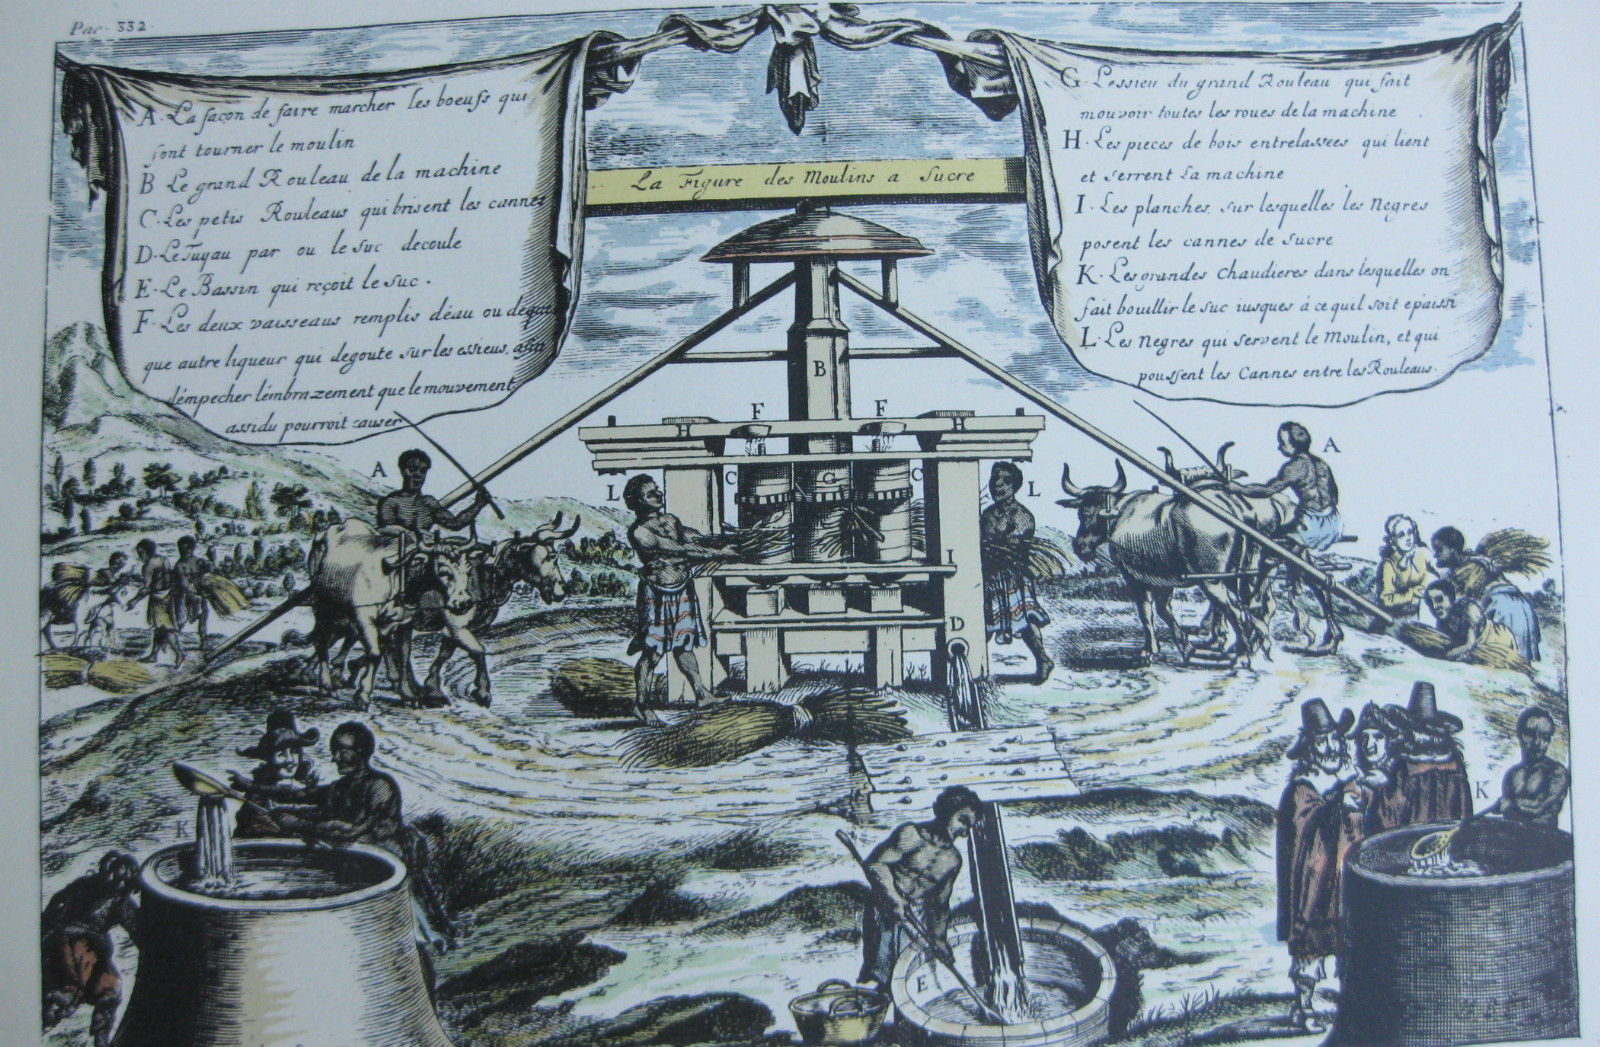 Pag. 332
A. La façon de faire marcher les boeufs qui
font tourner le moulin
B Le grand Rouleau de la machine
C. Les petis Rouleaus qui brisent les cannes
D. Le Tuyau par ou le suc decoule
E. Le Bassin qui reçoit le suc.
F. Les deux vaisseaus remplis d'eau ou de
que autre liqueur qui degoute sur les essieus, afin
d'empecher l'embrazement que le mouvement
assidu pourroit causer
La Figure des Moulins a Sucre
G. L'essieu du grand Rouleau qui fait
mouvoir toutes les roues de la machine
H. Les pieces de bois entrelassees qui lient
et serrent la machine
I. Les planches, sur lesquelles les Negres
posent les cannes de sucre
K. Les grandes chaudieres dans lesquelles on
fait bouillir le suc iusques à ce quil soit epaissi
L. Les Negres qui servent le Moulin, et qui
poussent les Cannes entre les Rouleaus.
B
F F
H H
A A
L C G C L
I
D
K K
E